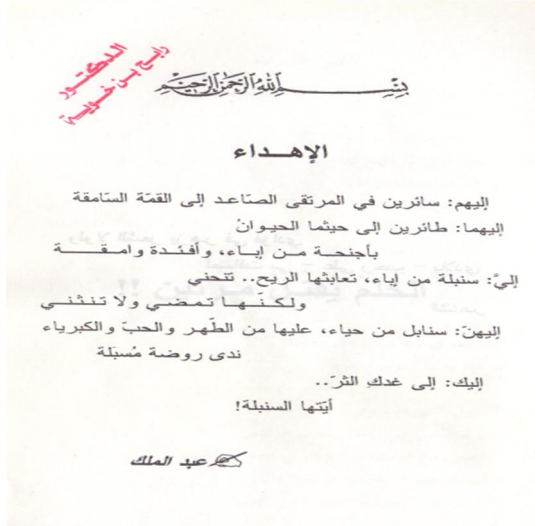 الدكتور
ربيع بن خوية
بِسْمِ اللَّهِ الرَّحْمَٰنِ الرَّحِيمِ
الإهداء
إليهم: سائرين في المرتقى الصّاعد إلى القمّة السّامقة
إليهما: طائرين إلى حيثما الحيوانُ
بأجنحة من إباء، وأفئدة وامقة
إليَّ: سنبلة من إباء، تعابثها الريح.. تنحني
ولكنّها تمضي ولا تنثني
إليهنّ: سنابل من حياء، عليها من الطّهر والحبّ والكبرياء
ندى روضة مُسبَلة
إليك: إلى غدكِ الثرّ..
أيّتها السنبلة!
عبد الملك